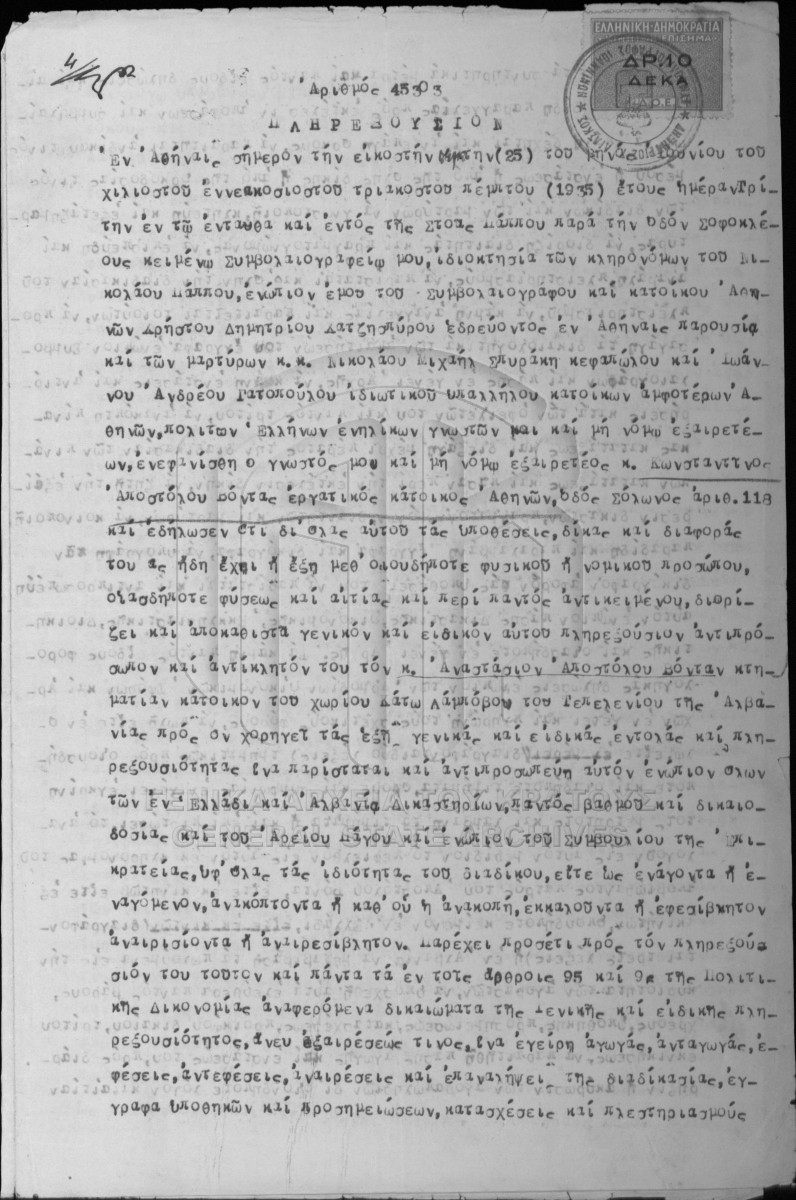 ΕΛΛΗΝΙΚΗ·ΔΗΜΟΚΡΑΤΙΑ
ΔΡ.10
ΔΕΚΑ
Ἀριθμός 45303
ΠΛΗΡΕΞΟΥΣΙΟΝ
Ἐν Ἀθήναις σήμερον τήν εἰκοστήν (25) τοῦ μηνός Ἰουνίου τοῦ
χιλιοστοῦ ἐννεακοσιοστοῦ τριακοστοῦ πέμπτου (1935) ἔτους ἡμέραν Τρί-
την ἐν τῷ ἐνταῦθα καί ἐντός τῆς Στοᾶς Πάππου παρά τήν ὁδόν Σοφοκλέ-
ους κειμένῳ Συμβολαιογραφείῳ μου, ἰδιοκτησία τῶν κληρονόμων τοῦ Νι-
κολάου Πάππου, ἐνώπιον ἐμοῦ τοῦ Συμβολαιογράφου καί κατοίκου Ἀθη-
νῶν Χρήστου Δημητρίου Χατζησπύρου ἑδρεύοντος ἐν Ἀθήναις παρουσία
καί τῶν μαρτύρων κ.κ. Νικολάου Μιχαήλ Σπυράκη κεφαπώλου καί Ἰωάν-
νου Ἀνδρέου Γατοπούλου ἰδιωτικοῦ ὑπαλλήλου κατοίκων ἀμφοτέρων Ἀ-
θηνῶν, πολιτῶν Ἑλλήνων ἐνηλίκων γνωστῶν μοι καί μή νόμῳ ἐξαιρετέ-
ων, ἐνεφανίσθη ὁ γνωστός μου καί μή νόμῳ ἐξαιρετέος κ. Κωνσταντῖνος
Ἀποστόλου Βόντας ἐργατικός κάτοικος Ἀθηνῶν, ὁδός Σόλωνος ἀριθ.118
καί ἐδήλωσεν ὅτι δι' ὅλας αὐτοῦ τάς ὑποθέσεις, δίκας καί διαφοράς
του ἅς ἤδη ἔχει ἤ ἕξη μεθ' οἱουδήποτε φυσικοῦ ἤ νομικοῦ προσώπου,
οἱασδήποτε φύσεως καί αἰτίας καί περί παντός ἀντικειμένου, διορί-
ζει καί ἀποκαθιστᾶ γενικόν καί εἰδικόν αὐτοῦ πληρεξούσιον ἀντιπρό-
σωπον καί ἀντίκλητόν του τόν κ. Ἀναστάσιον Ἀποστόλου Βόνταν κτη-
ματίαν κάτοικον τοῦ χωρίου Κάτω Λάμπόβου τοῦ Τεπελενίου τῆς Ἀλβα-
νίας πρός ὅν χορηγεῖ τάς ἑξῆς γενικάς καί εἰδικάς ἐντολάς καί πλη-
ρεξουσιότητας ἵνα παρίσταται καί ἀντιπροσωπεύη αὐτόν ἐνώπιον ὅλων
τῶν ἐν Ἑλλάδι καί Ἀλβανία Δικαστηρίων, παντός βαθμοῦ καί δικαιο-
δοσίας καί τοῦ Ἀρείου Πάγου καί ἐνώπιον τοῦ Συμβουλίου τῆς Ἐπι-
κρατείας, ὑφ' ὅλας τάς ἰδιότητας τοῦ διαδίκου, εἴτε ὡς ἐνάγοντα ἤ ἐ-
ναγόμενον, ἀνακόπτοντα ἤ καθ' οὗ ἡ ἀνακοπή, ἐκκαλοῦντα ἤ ἐφεσίβλητον
ἀναιρισίοντα ἤ ἀναιρεσίβλητον. Παρέχει προσέτι πρός τόν πληρεξού-
σιόν του τοῦτον καί πάντα τά ἐν τοῖς ἄρθροις 95 καί τῆς Πολιτι-
κῆς Δικονομίας ἀναφερόμενα δικαιώματα τῆς Γενικῆς καί εἰδικῆς πλη-
ρεξουσιότητος, ἄνευ ἐξαιρέσεώς τινος, ἵνα ἐγείρη ἀγωγάς, ἀνταγωγάς, ἐ-
φέσεις, ἀντεφέσεις, ἀναιρέσεις καί ἐπαναλήψεις τῆς διαδικασίας, ἐγ-
γραφά ὑποθηκῶν καί προσημειώσεων, κατασχέσεις καί πλεστηριασμούς
ΓΕΝΙΚΑ ΑΡΧΕΙΑ ΤΟΥ ΚΡΑΤΟΥΣ
GENERAL STATE ARCHIVES